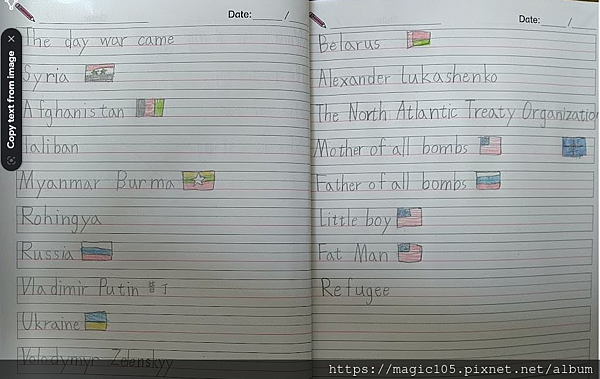 Date: /
The day war came
Syria
Afghanistan
Taliban
Myanmar Burma
Rohingya
Russia
Vladimir Putin 普丁
Ukraine
Volodymyr Zelenskyy
Date: /
Belarus
Alexander Lukashenko
The North Atlantic Treaty Organization
Mother of all bombs
Father of all bombs
Little boy
Fat Man
Refugee
Copy text from image
https://magic105.pixnet.net/album